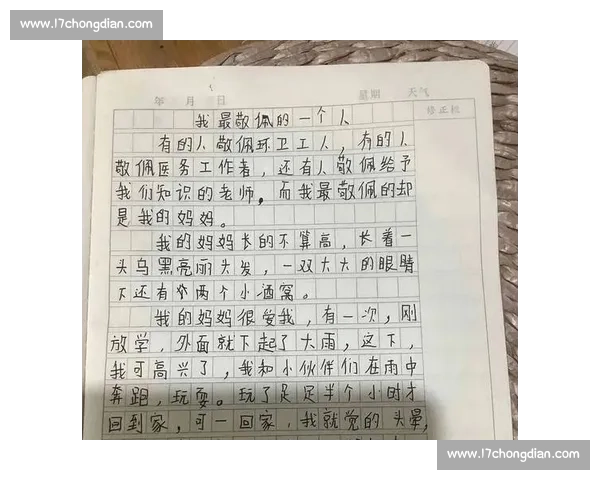 www.17chongdian.com
年 月 日 星期 天气
修正栏
我最敬佩的一个人
有的人敬佩环卫工人，有的人
敬佩医务工作者，还有人敬佩给予
我们知识的老师。而我最敬佩的却
是我的妈妈。
我的妈妈长的不算高，长着一
头乌黑亮丽头发，一双大大的眼睛
下还有两个小酒窝。
我的妈妈很爱我，有一次，刚
放学，外面就下起了大雨，这下，
我可高兴了，我和小伙伴们在雨中
奔跑，玩耍。玩了足足半个小时才
回到家，可一回家，我就觉的头晕，
www.17chongdian.com